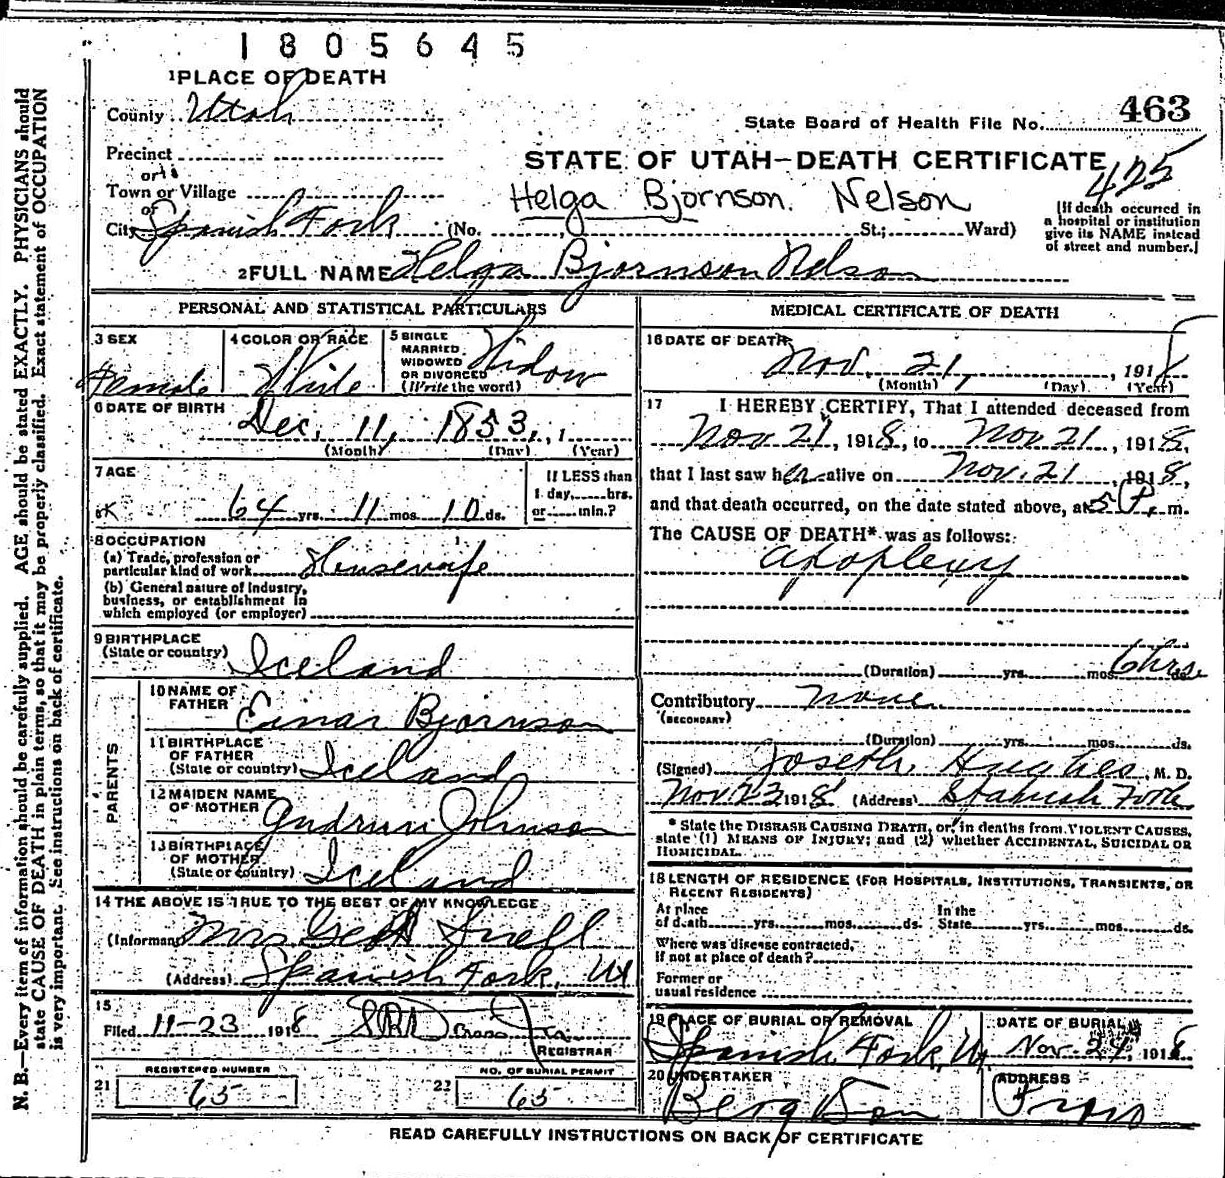 1805645
1 PLACE OF DEATH
County Utah
State Board of Health File No. 463
Precinct
or
Town or Village
or
City Spanish Fork (No. St.; Ward)
STATE OF UTAH—DEATH CERTIFICATE
425
Helga Bjornson Nelson
[If death occurred in
a hospital or institution
give its NAME instead
of street and number.]
2 FULL NAME Helga Bjornson Nelson
PERSONAL AND STATISTICAL PARTICULARS
3 SEX
Female
4 COLOR OR RACE
White
5 SINGLE
MARRIED
WIDOWED
OR DIVORCED
(Write the word)
Widow
6 DATE OF BIRTH
Dec. 11, 1853, 1
(Month) (Day) (Year)
7 AGE
64 yrs. 11 mos. 10 ds.
If LESS than
1 day, hrs.
or min.?
8 OCCUPATION
(a) Trade, profession or
particular kind of work Housewife
(b) General nature of Industry,
business, or establishment in
which employed (or employer)
9 BIRTHPLACE
(State or country) Iceland
PARENTS
10 NAME OF
FATHER Einar Bjornson
11 BIRTHPLACE
OF FATHER
(State or country) Iceland
12 MAIDEN NAME
OF MOTHER Gudrun Johnson
13 BIRTHPLACE
OF MOTHER
(State or country) Iceland
14 THE ABOVE IS TRUE TO THE BEST OF MY KNOWLEDGE
(Informant) Mrs Snell
(Address) Spanish Fork, Ut
15
Filed 11-23 1918
REGISTRAR
21 REGISTERED NUMBER
65
22 NO. OF BURIAL PERMIT
65
MEDICAL CERTIFICATE OF DEATH
16 DATE OF DEATH
Nov. 21, 1918
(Month) (Day) (Year)
17 I HEREBY CERTIFY, That I attended deceased from
Nov 21, 1918, to Nov 21, 1918,
that I last saw her alive on Nov. 21, 1918,
and that death occurred, on the date stated above, at 5 P. m.
The CAUSE OF DEATH* was as follows:
apoplexy
(Duration) yrs. mos. 6 hrs. ds.
Contributory none
(SECONDARY)
(Duration) yrs. mos. ds.
(Signed) Joseph Hughes, M. D.
Nov 23 1918 (Address) Spanish Fork
* State the DISEASE CAUSING DEATH, or, in deaths from VIOLENT CAUSES,
state (1) MEANS OF INJURY; and (2) whether ACCIDENTAL, SUICIDAL OR
HOMICIDAL.
18 LENGTH OF RESIDENCE (FOR HOSPITALS, INSTITUTIONS, TRANSIENTS, OR
RECENT RESIDENTS)
At place
of death yrs. mos. ds.
In the
State yrs. mos. ds.
Where was disease contracted,
if not at place of death?
Former or
usual residence
19 PLACE OF BURIAL OR REMOVAL
Spanish Fork, Ut.
DATE OF BURIAL
Nov. 24, 1918
20 UNDERTAKER
Berg & Son
ADDRESS
Provo
READ CAREFULLY INSTRUCTIONS ON BACK OF CERTIFICATE
N. B.—Every item of information should be carefully supplied. AGE should be stated EXACTLY. PHYSICIANS should
state CAUSE OF DEATH in plain terms, so that it may be properly classified. Exact statement of OCCUPATION
is very important. See instructions on back of certificate.